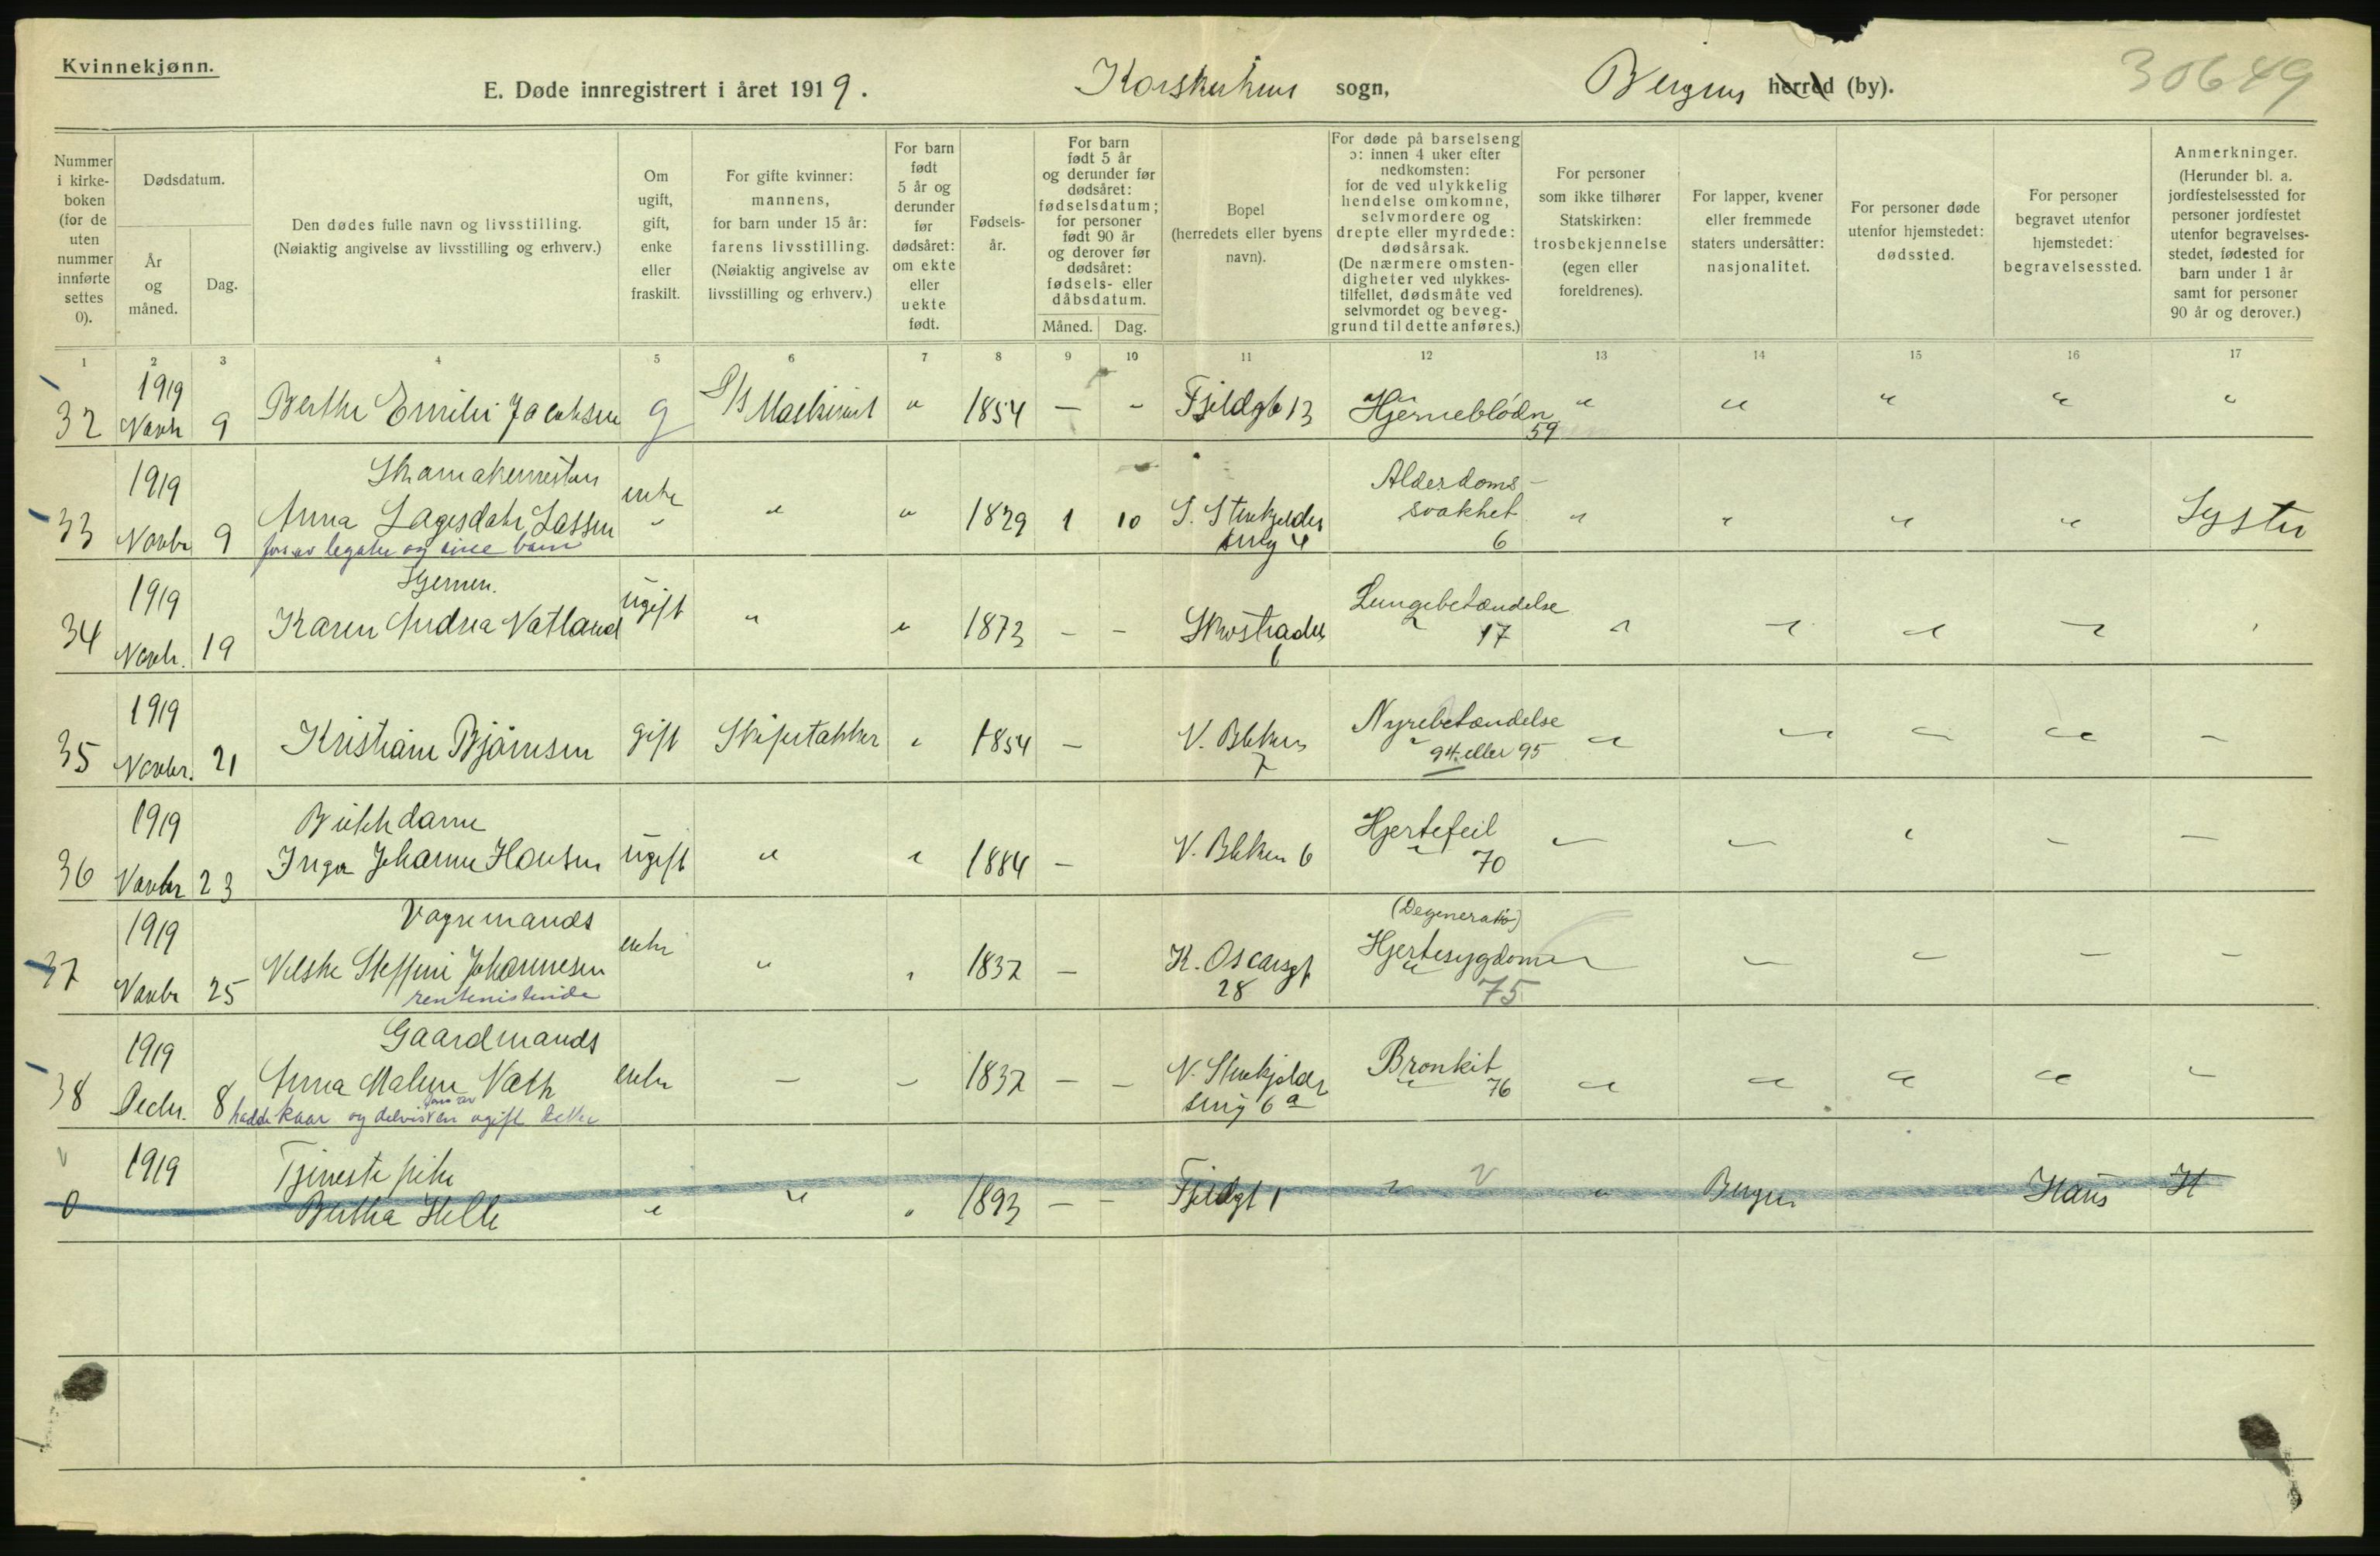 Kvinnekjønn.
30649
E. Døde innregistrert i året 1919. Korskirkens sogn, Bergens herred (by).
Nummer i kirkeboken (for de uten nummer innførte settes 0).
Dødsdatum.
År og måned.
Dag.
Den dødes fulle navn og livsstilling. (Nøiaktig angivelse av livsstilling og erhverv.)
Om ugift, gift, enke eller fraskilt.
For gifte kvinner: mannens, for barn under 15 år: farens livsstilling. (Nøiaktig angivelse av livsstilling og erhverv.)
For barn født 5 år og derunder før dødsåret: om ekte eller uekte født.
Fødselsår.
For barn født 5 år og derunder før dødsåret: fødselsdatum; for personer født 90 år og derover før dødsåret: fødsels- eller dåbsdatum.
Måned. Dag.
Bopel (herredets eller byens navn).
For døde på barselseng ɔ: innen 4 uker efter nedkomsten: for de ved ulykkelig hendelse omkomne, selvmordere og drepte eller myrdede: dødsårsak. (De nærmere omstendigheter ved ulykkestilfellet, dødsmåte ved selvmordet og beveggrund til dette anføres.)
For personer som ikke tilhører Statskirken: trosbekjennelse (egen eller foreldrenes).
For lapper, kvener eller fremmede staters undersåtter: nasjonalitet.
For personer døde utenfor hjemstedet: dødssted.
For personer begravet utenfor hjemstedet: begravelsessted.
Anmerkninger. (Herunder bl. a. jordfestelsessted for personer jordfestet utenfor begravelsesstedet, fødested for barn under 1 år samt for personer 90 år og derover.)
1 2 3 4 5 6 7 8 9 10 11 12 13 14 15 16 17
1919
32 Novbr 9 Berthe Emilie Jacobsen g S/S Maskinist " 1854 — " Fjeldgt 13 Hjerneblødn " " " " "
59
1919 enke Alderdoms-
33 Novbr 9 Anna Lagesdatr Lassen " " " 1829 1 10 S. Stenkjelder svakhet " " " " Lyster
smg 4 6
1919 Hjemm. ugift Lungebetændelse
34 Novbr. 19 Karen Andrea Vatland " " 1873 — — Skostrædet 17
1
1919 Nyrebetændelse
35 Novbr. 21 Kristiane Bjørnsen gift " 1854 — V. Blken
7 94 eller 95
1919 Hjertefeil
36 Novbr 23 Inga Johanne Hansen ugift " " 1884 — V. Blken 6 70
1919 Vognmands enke (Degeneratio)
37 Novbr 25 Steffine Johannesen " " 1837 — K. Oscarsgt Hjertesygdom
rentenistinde 28 75
1919 Gaardmands Bronkit
38 Decbr. 8 Anna Malene enke — — 1837 — — N. Stenkjelder 76
hadde kaar og delvis fors. av en ugift datter smg 6 a
1919 Tjeneste pike
0 Bertha Helle " " " 1893 — — Fjeldgt 1 " " Bergen Haus H